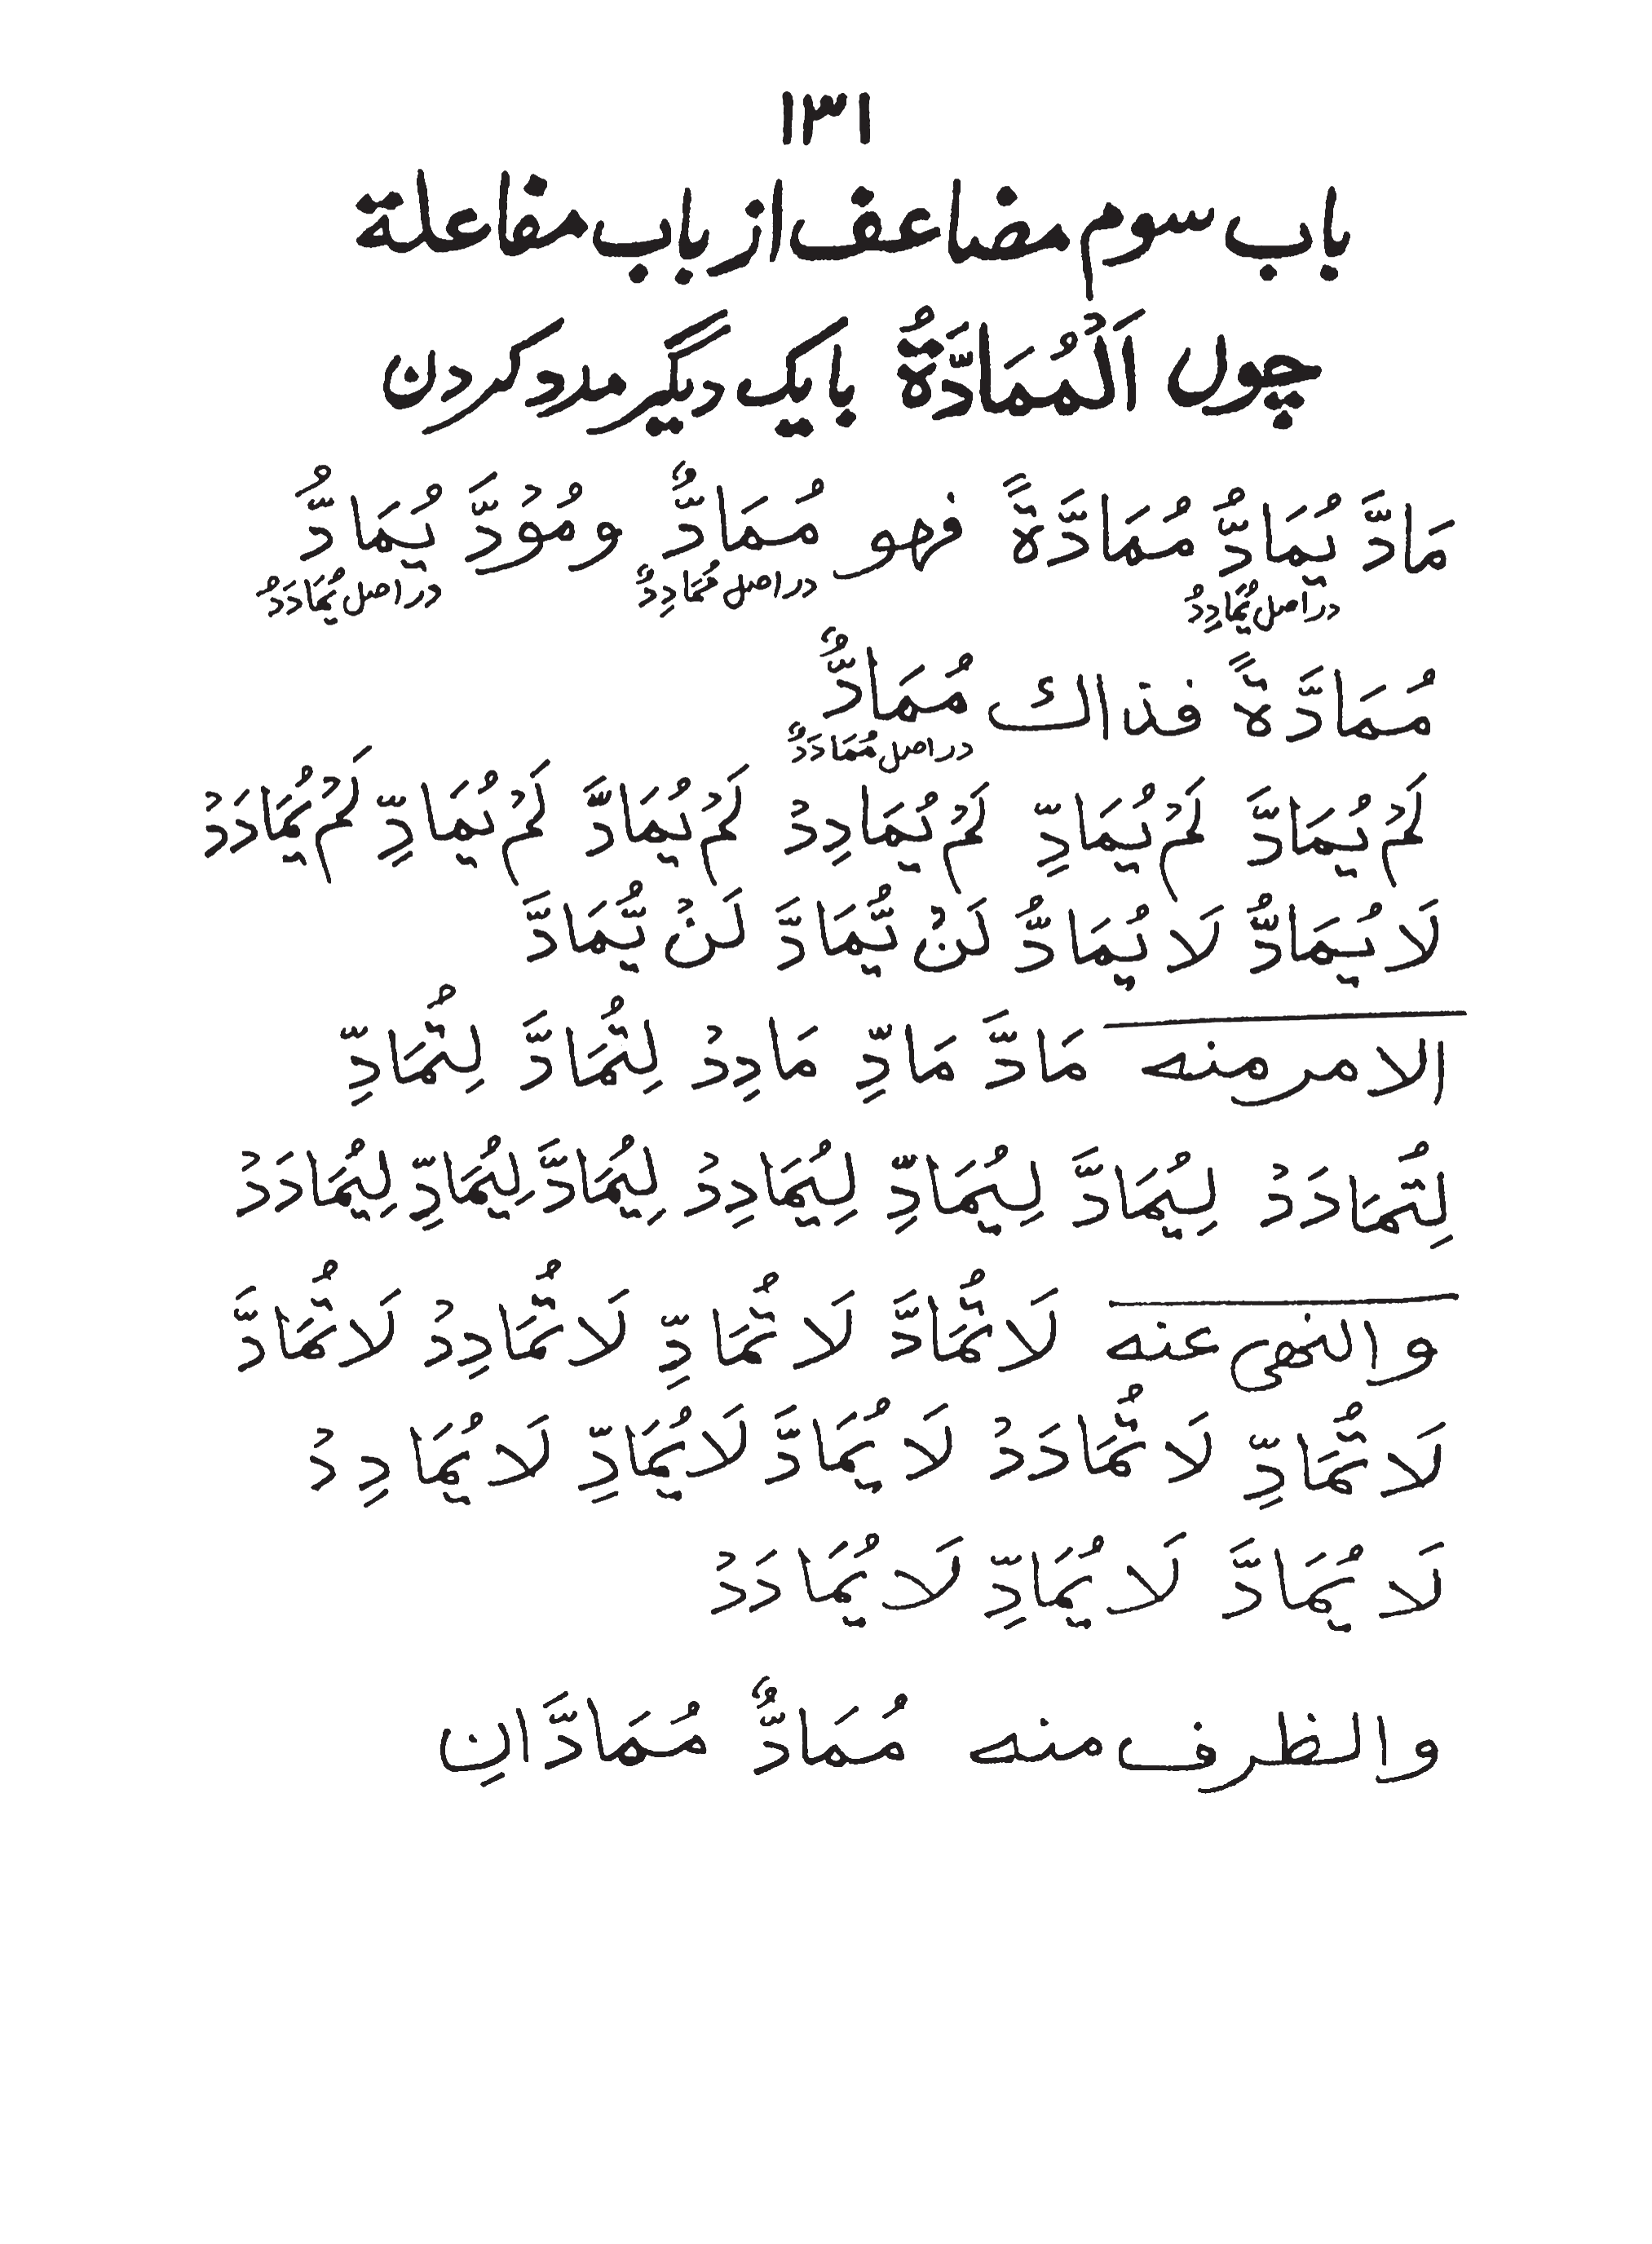 ۱۳۱
باب سوم مضاعف از باب مفاعلة
چوں اَلْمُمَادَّةُ بایک دیگیر مدد کردن
مَادَّ يُمَادُّ مُمَادَّةً فهو مُمَادٌّ ومُوْدَّ يُمَادُّ
دراصل يُمَادِدُ دراصل مُمَادِدٌ دراصل يُمَادَدُ
مُمَادَّةً فذاك مُمَادٌّ
دراصل مُمَادَدٌ
لَمْ يُمَادَّ لَمْ يُمَادِّ لَمْ يُمَادِدْ لَمْ يُمَادَّ لَمْ يُمَادِّ لَمْ يُمَادَدْ
لَا يُمَادُّ لَا يُمَادُّ لَنْ يُّمَادَّ لَنْ يُّمَادَّ
الامر منه مَادَّ مَادِّ مَادِدْ لِتُمَادَّ لِتُمَادِّ
لِتُمَادَدْ لِيُمَادَّ لِيُمَادِّ لِيُمَادِدْ لِيُمَادَّ لِيُمَادِّ لِيُمَادَدْ
والنهى عنه لَا تُمَادَّ لَا تُمَادِّ لَا تُمَادِدْ لَا تُمَادَّ
لَا تُمَادِّ لَا تُمَادَدْ لَا يُمَادَّ لَا يُمَادِّ لَا يُمَادِدْ
لَا يُمَادَّ لَا يُمَادِّ لَا يُمَادَدْ
والظرف منه مُمَادٌّ مُمَادَّانِ